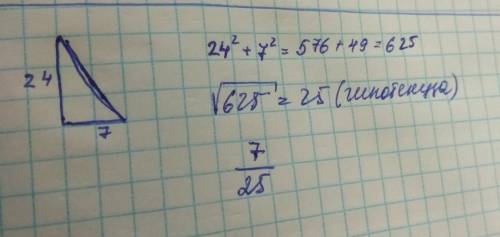 24
7
24² + 7² = 576 + 49 = 625
√625 = 25 (гипотенуза)
7
25